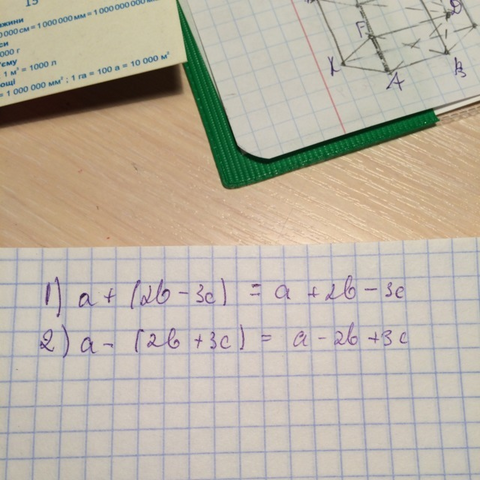 15
000 см = 1 000 000 мм = 1 000 000 000
000 г
1 м³ = 1000 л
= 1 000 000 мм² ; 1 га = 100 а = 10 000 м²
F
K
A
B
1) a + (2b - 3c) = a + 2b - 3c
2) a - (2b + 3c) = a - 2b + 3c